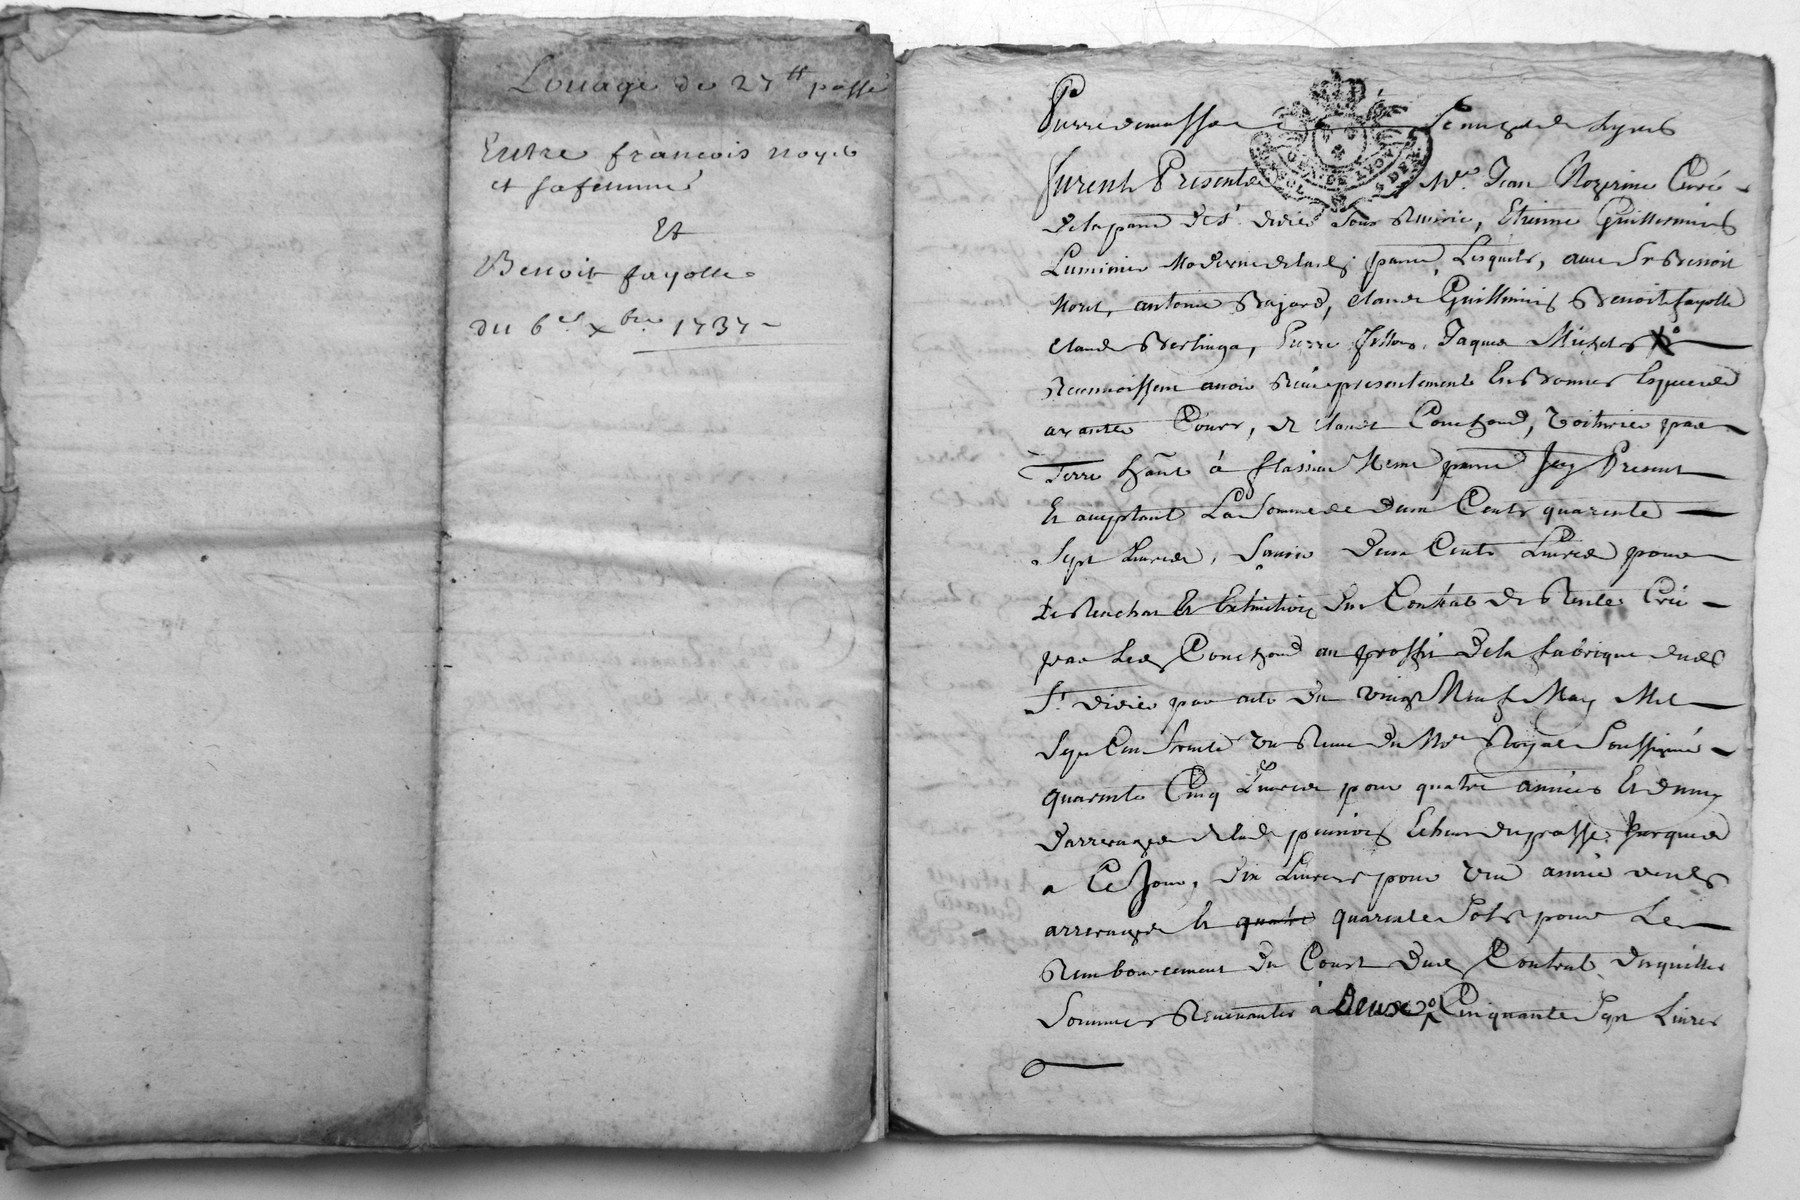 Louage de 27 tt passé
Entre francois noyel
et sa femme
Et
Benoit fayolle
du 6e xbre 1737
Pierre
furent Presents Mre. Jean Curé
de la parre de st. didier sous Riverie, Etienne Guillermin
Luminier Moderne de lad parre, Lesquels, avec Sr Benoit
antoine Bajard, claude Guillermin Benoit fayolle
claude Berlinga, Pierre Jaques Michel
Reconnoissent avoir Reçu presentement En Bonnes Especes
ayantes Cours, de claude Conchond, voiturier par
Terre hant à parre Icy Present
Et acceptant La Somme de deux Cents quarente
Sept Livres, Scavoir deux Cents Livres pour
Le Rachat Et Extinction du Contrat de Rente Créé
par Led Conchond au proffit de la fabrique dud
St. didier par acte du vingt Neuf May Mil
Sept Cent trente un Receu du Nre Royal Soussigné
quarente Cinq Livres pour quatre années Et demy
darrerages de lad pension Echeus du passé Jusques
a Ce Jour, dix Livres pour une année
arrerages Et quatre quarente Sols pour Le
Rembourcement du Coust dud Contrat, desquelles
Sommes Revenantes à Deux Cinquante Sept Livres